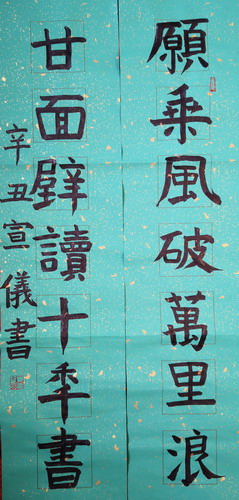 願乘風破萬里浪
甘面壁讀十年書
辛丑宣儀書